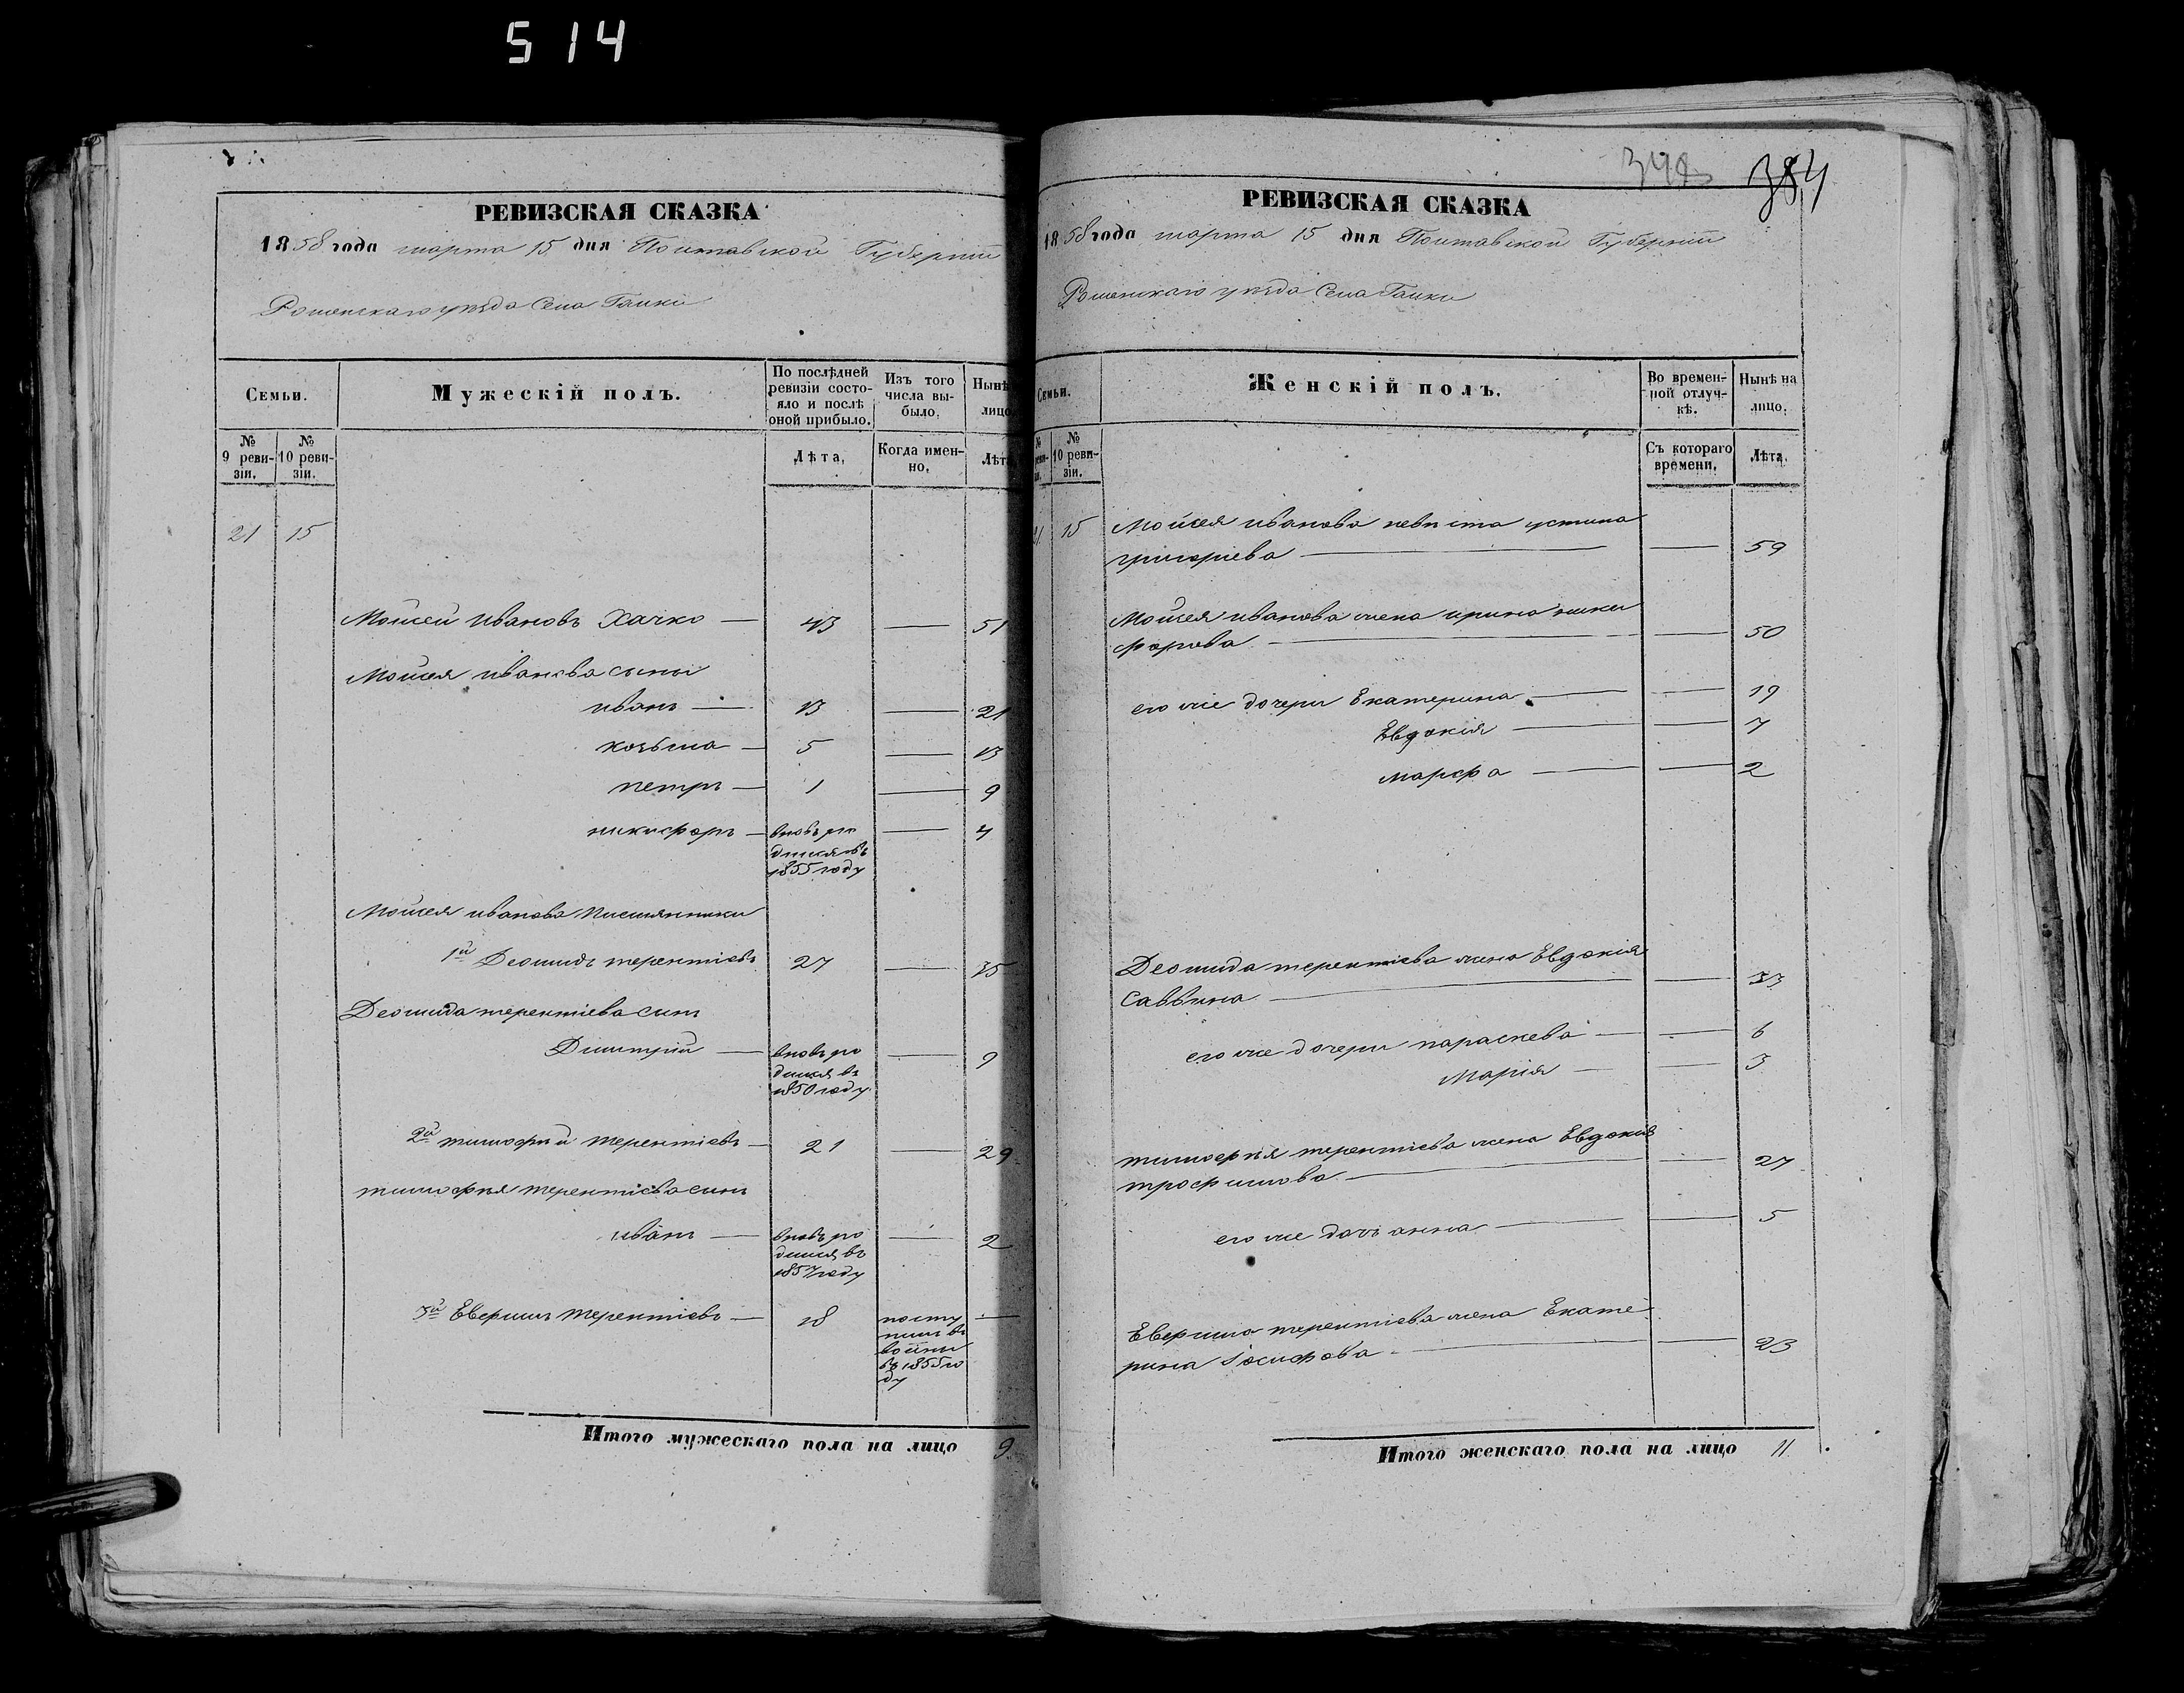 514
РЕВИЗСКАЯ СКАЗКА
1858 года марта 15 дня Полтавской Губернiи
Роменскаго уѣзда Села Галки
Семьи.
Мужескій полъ.
По послѣдней ревизіи состояло и послѣ оной прибыло.
Изъ того числа выбыло.
Нынѣ
лицо
№ 9 ревизіи.
№ 10 ревизіи.
Лѣта,
Когда именно.
Лѣта
21 15
Мойсей Ивановъ Хачко — 43 — 51
Мойсея иванова сыны
иванъ — 13 — 21
козьма — 5 — 13
петръ — 1 — 9
никифоръ — вновь ро — 4
дился въ
1855 году
Мойсея иванова племянники
1й Деомидъ терентіевъ 27 — 35
Деомида терентіева сынъ
Димитрій — вновь ро — 9
дился въ
1850 году
2й тимофѣй терентіевъ — 21 — 29
тимофѣя терентіева сынъ
иванъ — вновь ро — 2
дился въ
1857 году
3й Евфимъ терентіевъ — 18 посту —
пилъ въ
воины
въ 1855 го
ду
Итого мужескаго пола на лицо 9.
348 384
РЕВИЗСКАЯ СКАЗКА
1858 года марта 15 дня Полтавской Губерніи
Роменскаго уѣзда Села Галки
Семьи.
Женскій полъ.
Во временной отлучкѣ.
Нынѣ на лицо.
№ 10 ревизіи.
Съ котораго времени.
Лѣта.
21 15 Мойсея иванова невѣста устина
григоріева — — 59
Мойсея иванова жена ирина ники
форова — — 50
его же дочери Екатерина — — 19
Евдокія — — 7
марфа — — 2
Деомида терентіева жена Евдокія
Саввина — — 33
его же дочери параскева — — 6
Марія — — 3
тимофѣя терентіева жена Евдокія
трофимова — — 27
его же дочь анна — — 5
Евфима терентіева жена Екате
рина Іосифова — — 23
Итого женскаго пола на лицо 11.